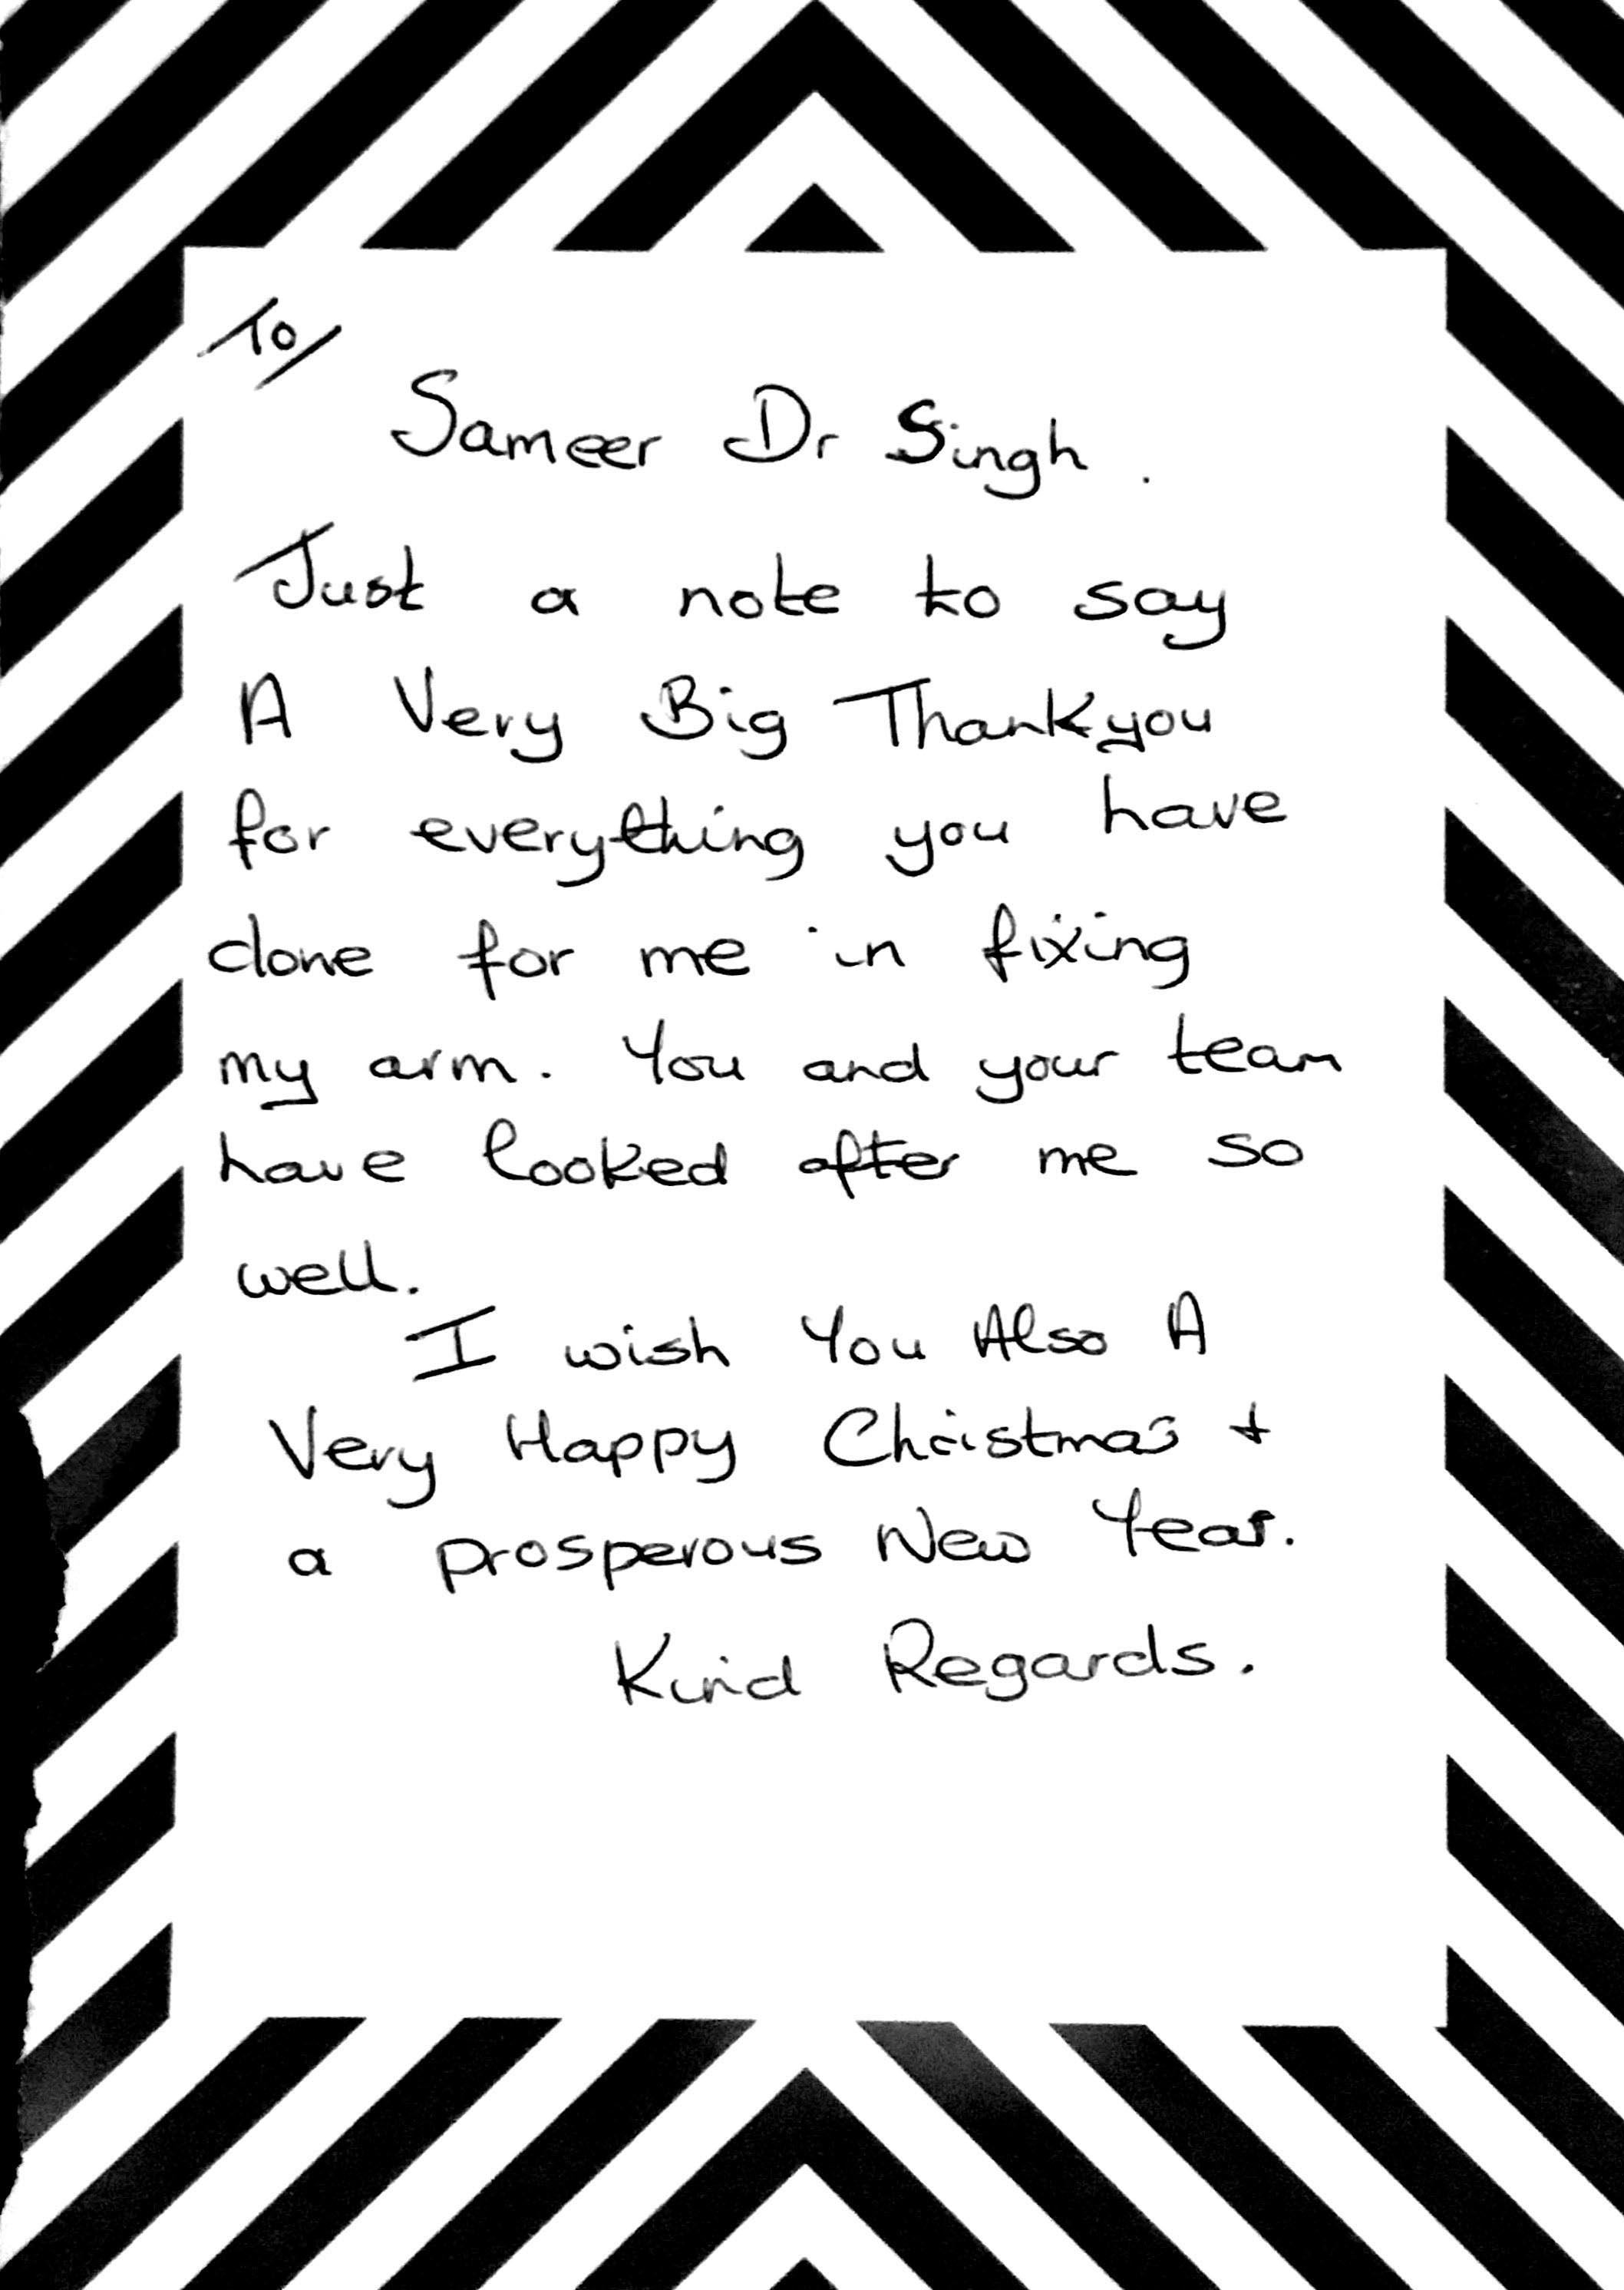 To/
Sameer Dr Singh.
Just a note to say
A Very Big Thankyou
for everything you have
done for me in fixing
my arm. You and your team
have looked after me so
well.
I wish You Also A
Very Happy Christmas +
a prosperous New Year.
Kind Regards.